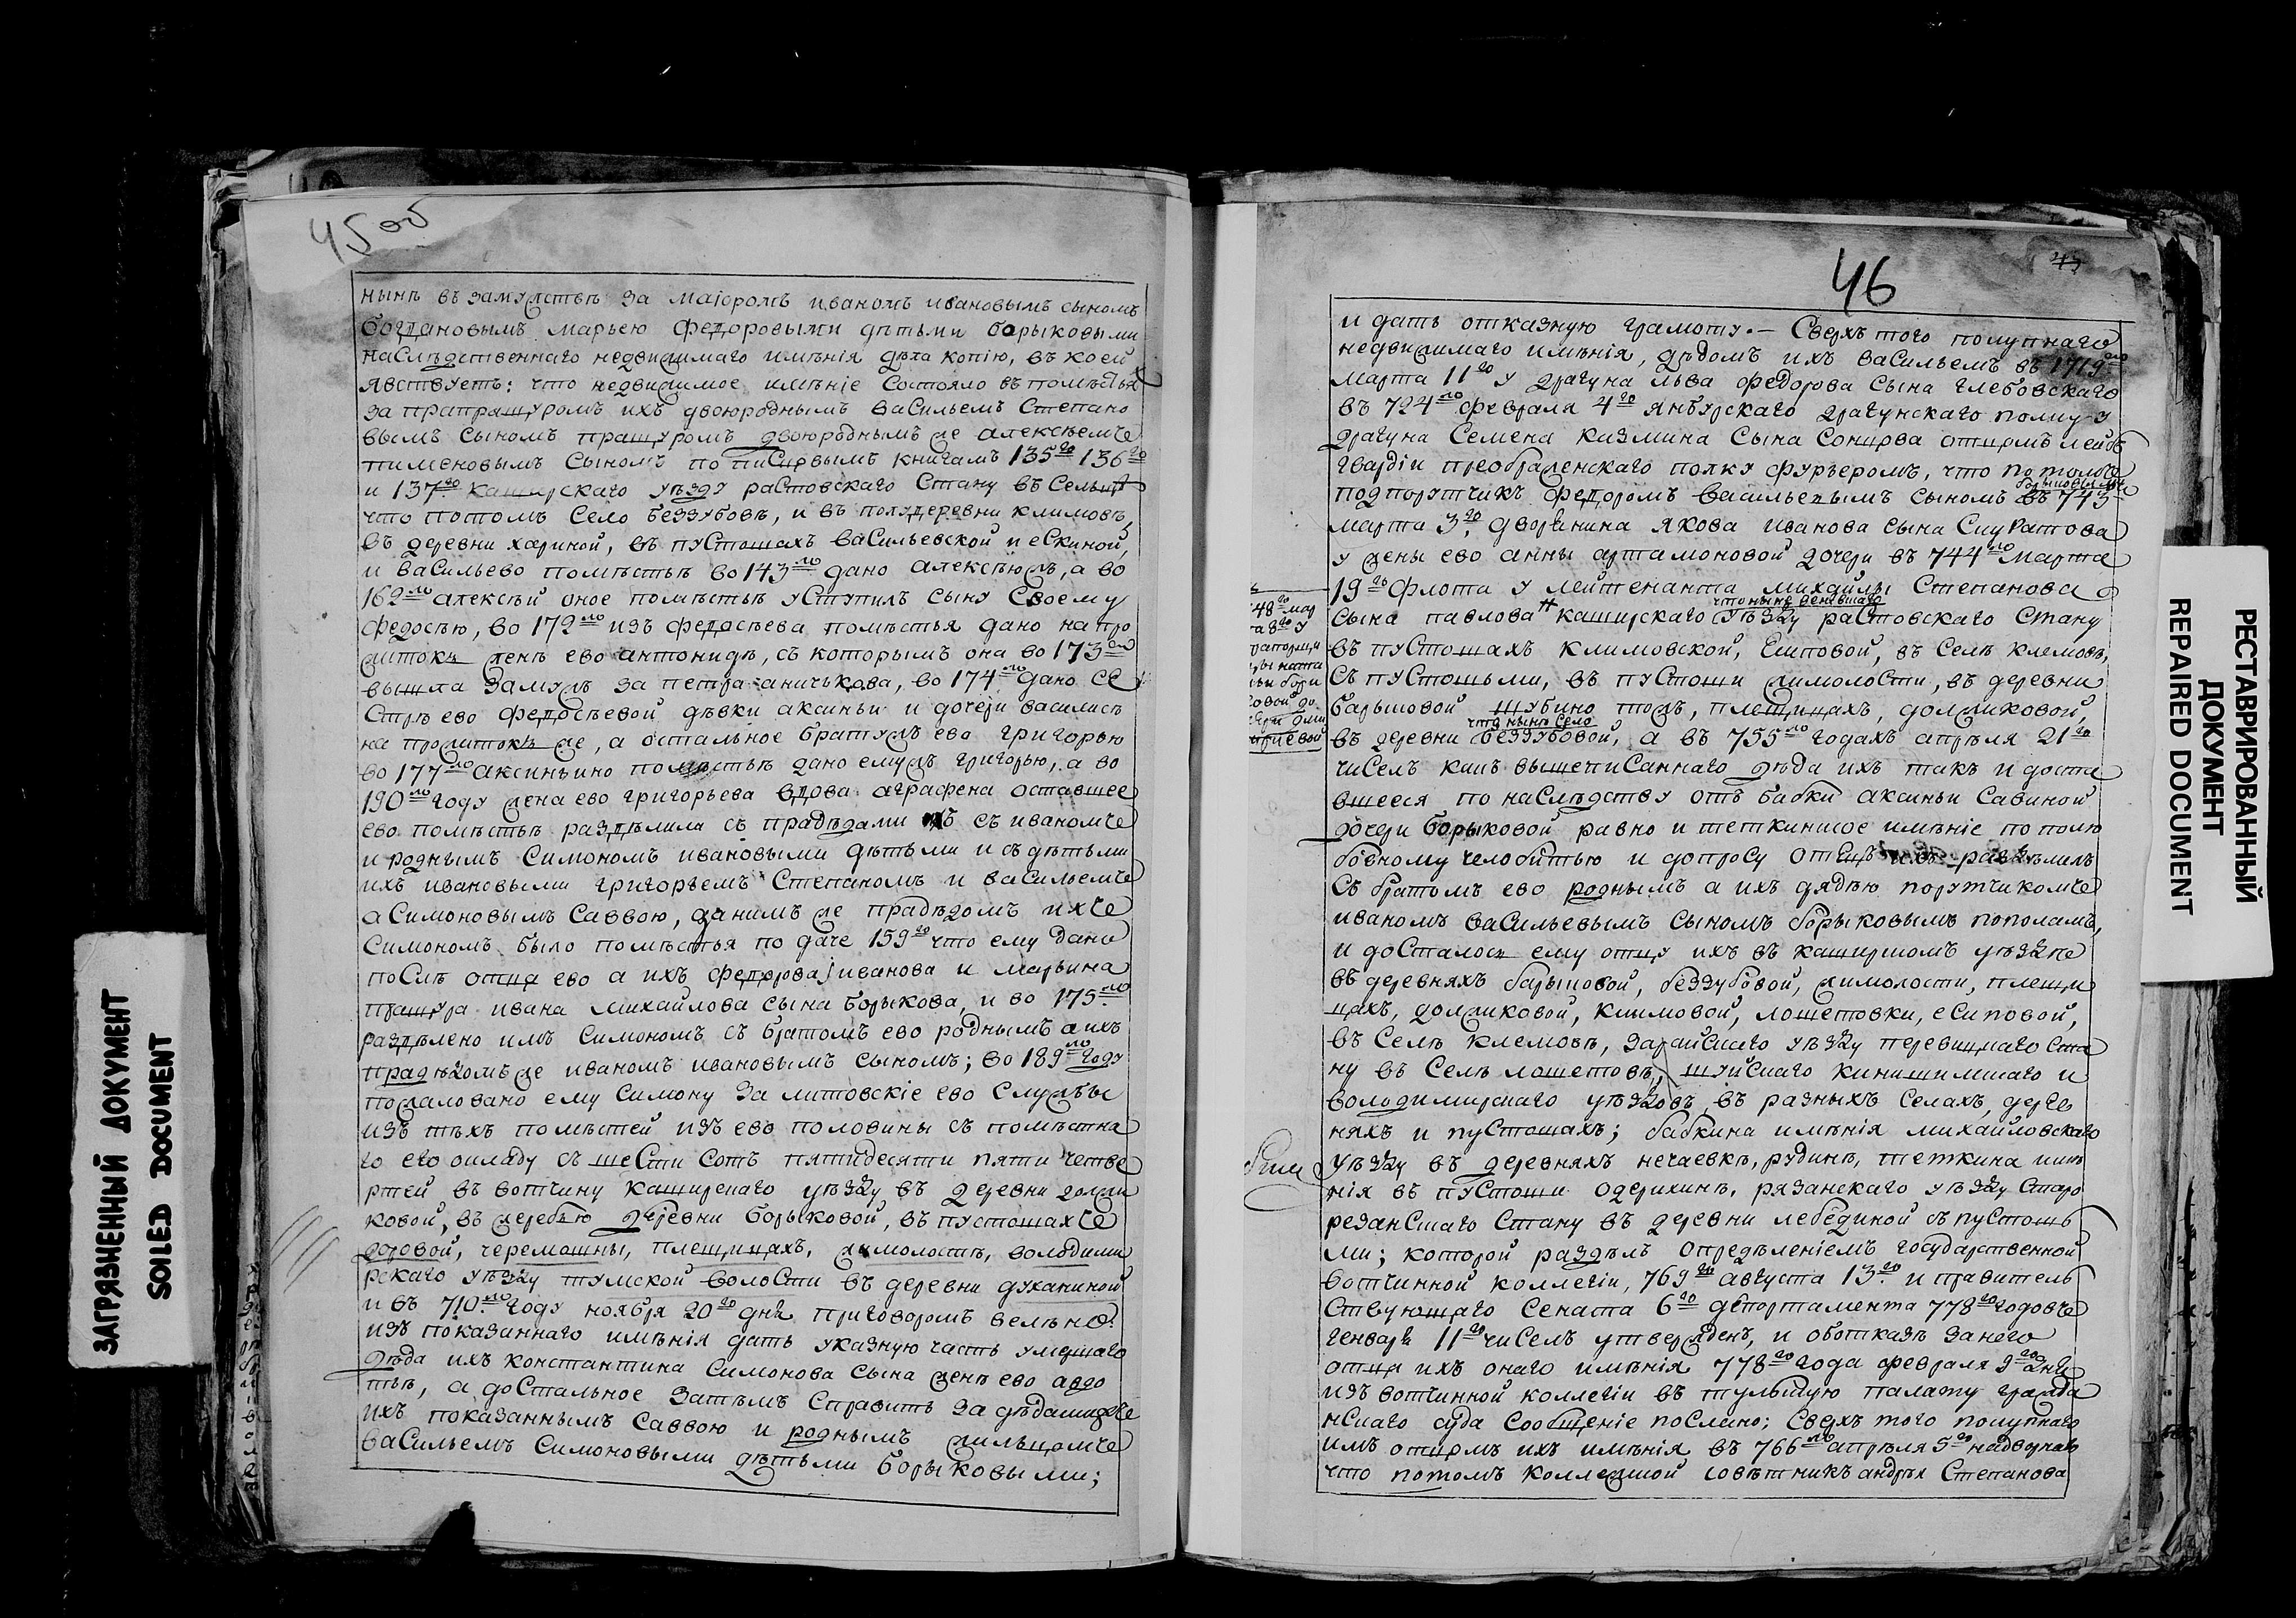 45 об
нынѣ въ замужствѣ за маіоромъ иваномъ ивановымъ сыномъ
богдановымъ марьею федоровыми дѣтьми борыковыми
наслѣдственнаго недвижимаго имѣнія дѣла копію, въ коей
явствуетъ: что недвижимое имѣніе состояло въ помѣстьѣ
за прапращуромъ ихъ двоюроднымъ васильемъ степано
вымъ сыномъ пращуромъ двоюроднымъ же алексѣемъ
пименовымъ сыномъ по писцовымъ книгамъ 135го 136го
и 137го каширскаго уѣзду растовскаго стану въ сельцѣ
что потомъ село беззубовъ, и въ полудеревни климовѣ,
въ деревни хариной, въ пустошахъ васильевской и ескиной,
и васильево помѣстье во 143мъ дано алексѣюжъ, а во
169мъ алексѣй оное помѣстье уступилъ сыну своему
федосѣю, во 172мъ изъ федосѣева помѣстья дано на про
житокъ женѣ ево антонидѣ, съ которымъ она во 173ем
вышла замужъ за петра аничькова, во 174мъ дано се
стрѣ ево федосѣевой дѣвки аксиньи и дочери василисѣ
на прожитокъ же, а остальное братужъ ево григорью
во 177мъ аксиньино помѣстье дано емужъ григорью, а во
190мъ году жена ево григорьева вдова аграфена оставшее
ево помѣстье раздѣлила съ прадѣдами ихъ съ иваномъ
и роднымъ симономъ ивановыми дѣтьми и съ дѣтьми
ихъ ивановыми григорьемъ степаномъ и васильемъ
а симоновымъ саввою, за нимъ же прадѣдомъ ихъ
симономъ было помѣстья по даче 159го что ему дано
послѣ отца ево а ихъ федорова иванова и марьина
пращура ивана михайлова сына борыкова, и во 175мъ
раздѣлено имъ симономъ съ братомъ ево роднымъ а ихъ
прадѣдомъ же иваномъ ивановымъ сыномъ; во 189мъ году
пожаловано ему симону за литовскіе ево службы
изъ тѣхъ помѣстей изъ ево половины съ помѣстна
го его окладу съ шести сотъ пятидесяти пяти четве
ртей въ вотчину каширскаго уѣзду въ деревни должи
ковой, въ жеребью деревни борыковой, въ пустошахъ
доровой, черемошны, плещицахъ, жимолостѣ, володими
рскаго уѣзду тумской волости въ деревни духаниной
и въ 710мъ году ноября 20го дня приговоромъ велѣно:
изъ показаннаго имѣнія дать указную часть умершаго
дѣда ихъ константина симонова сына женѣ ево авдо
тьѣ, а достальное затѣмъ справить за дѣдамижъ
ихъ показаннымъ саввою и роднымъ жильцомъ
васильемъ симоновыми дѣтьми борыковыми;
46
и дать отказную грамоту. - Сверхъ того покупнаго
недвижимаго имѣнія, дѣдомъ ихъ васильемъ въ 1719мъ
марта 11го у драгуна льва федорова сына глебовскаго
въ 724мъ февраля 4го янбурскаго драгунскаго полку у
драгуна семена кузмина сына сонцова отцомъ лейбъ
гвардіи преображенскаго полку фурьеромъ, что потомъ
борыковымъ
подпорутчикъ федоромъ васильевымъ сыномъ въ 743
марта 3го дворянина якова иванова сына скуратова
у жены ево анны артамоновой дочери въ 744мъ марта
19го флота у лейтенанта михайлы степанова
что нынѣ веневшаго
сына павлова # каширскаго уѣзду растовскаго стану
48го мар
та 8го у
въ пустошахъ климовской, есиповой, въ селѣ клемовѣ,
съ пустошьми, въ пустоши жимолости, въ деревни
барышовой шубино тожъ, плещицахъ, должиковой,
что нынѣ село
въ деревни беззубовой, а въ 755мъ годахъ апрѣля 21го
чиселъ какъ вышеписаннаго дѣда ихъ такъ и доста
вшееся по наслѣдству отъ бабки аксиньи савиной
дочери борыковой равно и теткинское имѣніе по полю
бовному челобитью и допросу отецъ ихъ раздѣлилъ
съ братомъ ево роднымъ а ихъ дядѣю порутчикомъ
иваномъ васильевымъ сыномъ борыковымъ пополамъ,
и досталось ему отцу ихъ въ каширскомъ уѣздѣ
въ деревняхъ барышовой, беззубовой, жимолости, плещи
цахъ, должиковой, климовой, лошетовки, есиповой,
въ селѣ клемовѣ, зарайскаго уѣзду перевицкаго ста
ну въ селѣ лошетовѣ, шуйскаго кинишемскаго и
володимирскаго уѣздовъ въ разныхъ селахъ, дерев
няхъ и пустошахъ; бабкина имѣнія михайловскаго
уѣзду въ деревняхъ нечаевкѣ, рудинѣ, теткина имѣ
нія въ пустоши одерихинѣ, рязанскаго уѣзду старо
резанскаго стану въ деревни лебединой съ пустошь
ми; которой раздѣлъ опредѣленіемъ государственной
вотчинной коллегіи, 769го августа 13го и правитель
ствующаго сената 6го департамента 778го годовъ
генваря 11го чиселъ утвержденъ, и оботказѣ за него
отца ихъ онаго имѣнія 778го года февраля 9го дня
изъ вотчинной коллегіи въ тульскую палату гражда
нскаго суда сообщеніе послано; сверхъ того покупнаго
имъ отцомъ ихъ имѣнія въ 766мъ апрѣля 5го надворнаго
что потомъ коллежской совѣтникъ андрѣя степанова
ЗАГРЯЗНЕННЫЙ ДОКУМЕНТ
SOILED DOCUMENT
РЕСТАВРИРОВАННЫЙ
ДОКУМЕНТ
REPAIRED DOCUMENT